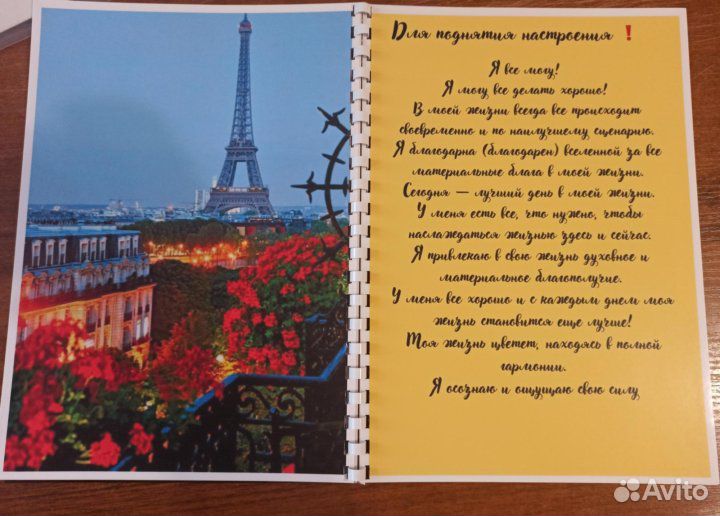 Для поднятия настроения ❗
Я все могу!
Я могу все делать хорошо!
В моей жизни всегда все происходит
своевременно и по наилучшему сценарию.
Я благодарна (благодарен) вселенной за все
материальные блага в моей жизни.
Сегодня — лучший день в моей жизни.
У меня есть все, что нужно, чтобы
наслаждаться жизнью здесь и сейчас.
Я привлекаю в свою жизнь духовное и
материальное благополучие.
У меня все хорошо и с каждым днем моя
жизнь становится еще лучше!
Моя жизнь цветет, находясь в полной
гармонии.
Я осознаю и ощущаю свою силу
Avito